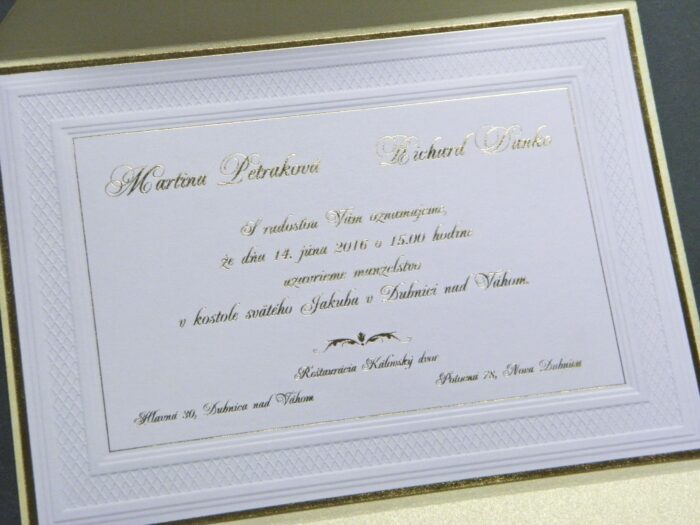 Martina Petraková Richard Danko
S radosťou Vám oznamujeme,
že dňa 14. júna 2016 o 15.00 hodine
uzavrieme manželstvo
v kostole svätého Jakuba v Dubnici nad Váhom.
Reštaurácia Kálinský dvor
Hlavná 30, Dubnica nad Váhom Potočná 78, Nová Dubnica